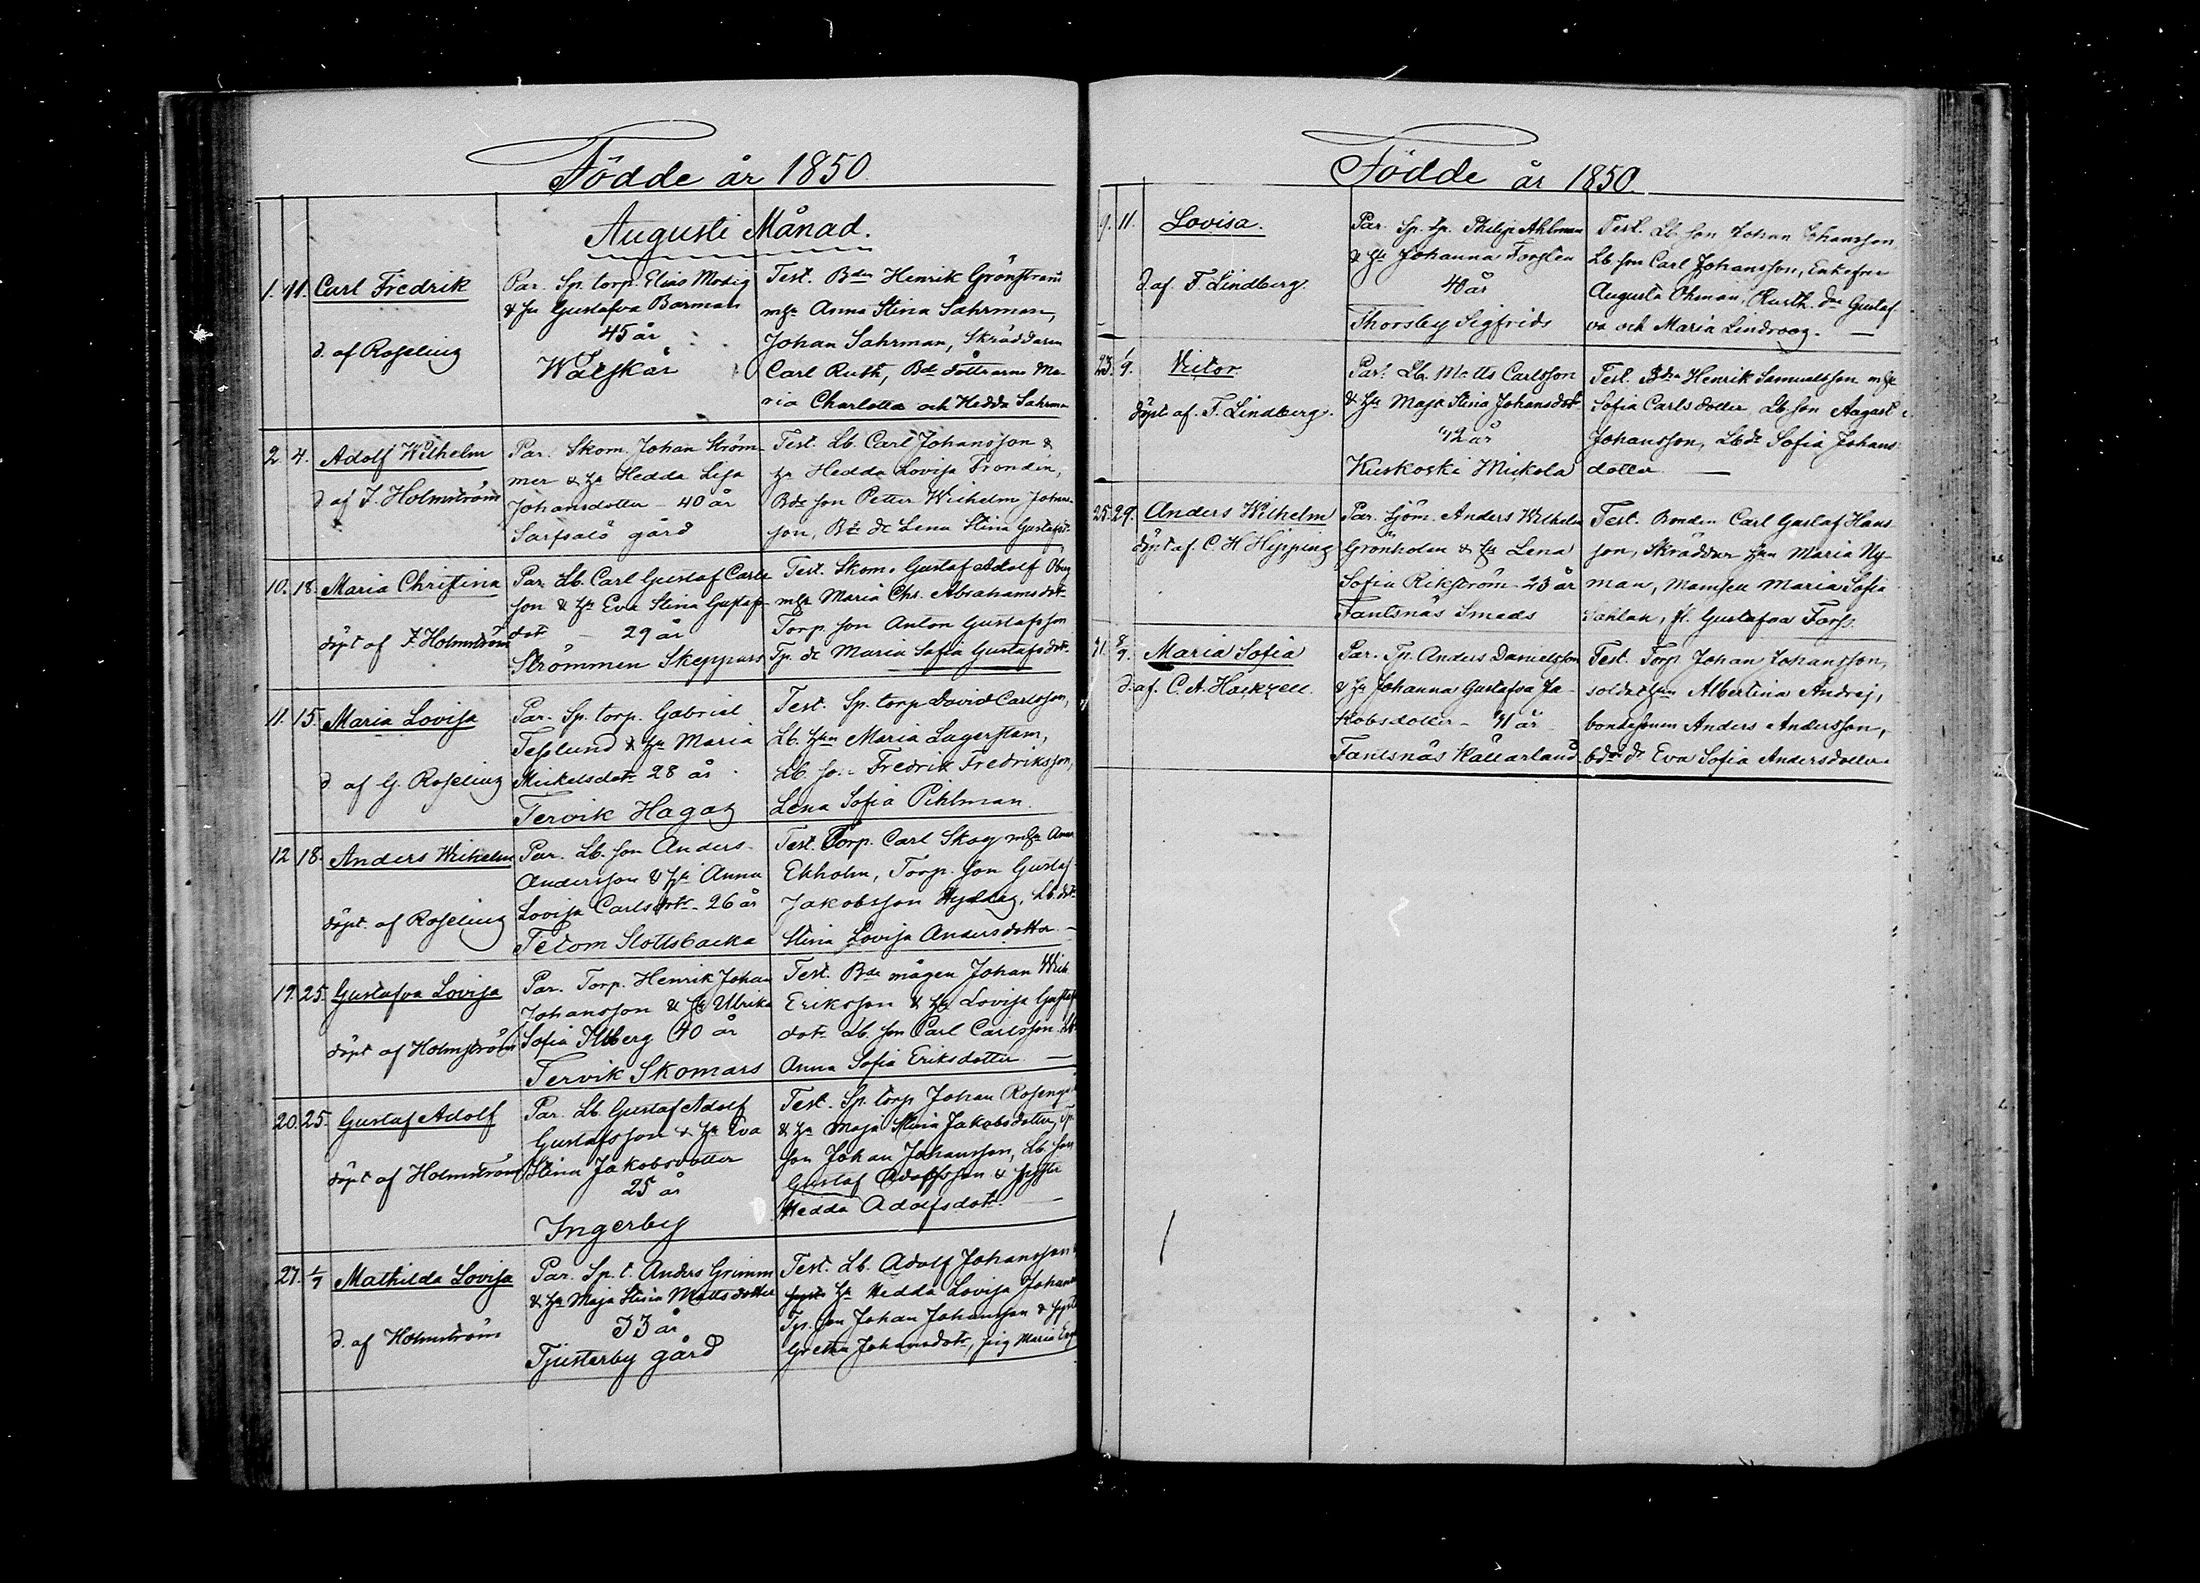 Födde år 1850
Augusti Månad.
1. 11. Carl Fredrik
d. af Roseling
Par. Sp. torp. Elias Modig
& hu Gustafva Barman
45 år
Wåtskär
Test. Bdn Henrik Grönstrand
mhu Anna Stina Sahrman,
Johan Sahrman, Skräddaren
Carl Ruth, Bd döttrarne Ma-
ria Charlotta och Hedda Sahrman
2 4. Adolf Wilhelm
d af F. Holmström
Par. Skom. Johan Ström-
mer & hu Hedda Lisa
Johansdotter - 40 år
Sarfsalö gård
Test. Lb. Carl Johansson &
hu Hedda Lovisa Frondin,
Bde son Petter Wilhelm Johans-
son, Bde dr Lena Stina Gustafsdr
10. 18. Maria Christina
döpt af F. Holmström
Par. Lb. Carl Gustaf Carls
son & hu Eva Stina Gustafs-
dotr - 29 år
Strömmen Skeppars
Test. Skom. Gustaf Adolf Öberg
mhu Maria Chr. Abrahamsdotr
Torp. son Anton Gustafsson
Tp. dr Maria Sofia Gustafsdotr.
11. 15. Maria Lovisa
d af G. Roseling
Par. Sp. torp. Gabriel
Teslund & hu Maria
Mickelsdotr 28 år
Tervik Hagas
Test. Sp. torp David Carlsson,
Lb. hun Maria Lagerstam,
Lb. son Fredrik Fredriksson,
Lena Sofia Pihlman.
12 18. Anders Wilhelm
döpt. af Roseling
Par. Lb. son Anders
Andersson & hu Anna
Lovisa Carlsdotr - 26 år
Tetom Slottsbacka
Test. Torp. Carl Skog mhu Anna
Ekholm, Torp. son Gustaf
Jakobsson Hydday, Lb. dotr
Stina Lovisa Andersdotter. -
19. 25. Gustafva Lovisa
döpt af Holmström
Par. Torp. Henrik Johan
Johansson & hu Ulrika
Sofia Ahlberg 40 år
Tervik Skomars
Test. Bde mågen Johan Wilh
Eriksson & hu Lovisa Gustafs
dotr Lb. son Carl Carlsson. Lb
Anna Sofia Eriksdotter -
20. 25. Gustaf Adolf
döpt af Holmström
Par. Lb. Gustaf Adolf
Gustafsson & hu Eva
Stina Jakobsdotter
25 år
Ingerby
Test. Sp. torp Johan Roseng
& hu Maja Stina Jakobsdotter, Tp.
son Johan Johansson, Lb. son
Gustaf Adolfsson & syster
Hedda Adolfsdotr. -
27. 1/9 Mathilda Lovisa
d. af Holmström
Par. Sp. t. Anders Grimm
& hu Maja Stina Mattsdotter
33 år
Tjusterby gård
Test. Lb. Adolf Johansson
hu Hedda Lovisa Johans
Tp. son Johan Johansson & syster
Gretha Johansdotr, pig Maria
Födde år 1850
9. 11. Lovisa.
d af. F. Lindberg.
Par. Sp. tp. Philip Ahlman
& hu Johanna Forsten
40 år
Thorsby Sigfrids
Test. Lb. son Johan Johansson
Lb son Carl Johansson, Enkefru
Augusta Öhman, Husth. dr Gustaf-
va och Maria Lindroos. -
23. 1/9. Victor.
döpt af. F. Lindberg.
Par. Lb. Matts Carlsson
& hu Maja Stina Johansdotr
42 år
Kuskoski Mickola
Test. Bdn Henrik Samuelsson mhu
Sofia Carlsdotter Lb. son August
Johansson, Lb dr Sofia Johans
dotter -
25. 29. Anders Wilhelm
döpt af. C. H. Hipping
Par. sjöm. Anders Wilhelm
Grönholm & hu Lena
Sofia Rikström - 23 år
Fantsnäs Smeds
Test. Bonden Carl Gustaf Hans
son, Skräddar hun Maria Ny-
man, Mamsell Maria Sofia
Sahlan, fl. Gustafva Forss.
31. 8/9. Maria Sofia
d. af. C. A. Hackzell.
Par. Tp. Anders Danielsson
& hu Johanna Gustafva Ja-
kobsdotter - 41 år
Fantsnäs Källarland
Test. Torp. Johan Johansson,
soldat hun Albertina Andrej,
bondesonen Anders Andersson,
bde dr Eva Sofia Andersdotter.